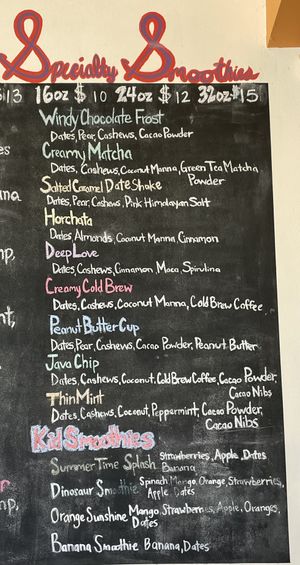 Specialty Smoothies
$13 16oz $10 24oz $12 32oz $15
Windy Chocolate Frost
Dates, Pear, Cashews, Cacao Powder
es Creamy Matcha
Dates, Cashews, Coconut Manna, Green Tea Matcha
Powder
na Salted Caramel Date Shake
Dates, Pear, Cashews, Pink Himalayan Salt
Horchata
Dates, Almonds, Coconut Manna, Cinnamon
mp, Deep Love
Dates, Cashews, Cinnamon, Maca, Spirulina
Creamy Cold Brew
Dates, Cashews, Coconut Manna, Cold Brew Coffee
nt, Peanut Butter Cup
Dates, Pear, Cashews, Cacao Powder, Peanut Butter
Java Chip
Dates, Cashews, Coconut, Cold Brew Coffee, Cacao Powder,
Cacao Nibs
Thin Mint
Dates, Cashews, Coconut, Peppermint, Cacao Powder,
Cacao Nibs
Kid Smoothies
Summer Time Splash Strawberries, Apple, Dates
Banana
Dinosaur Smoothie Spinach, Mango, Orange, Strawberries,
Apple, Dates
mp, Orange Sunshine Mango, Strawberries, Apple, Oranges,
Dates
Banana Smoothie Banana, Dates